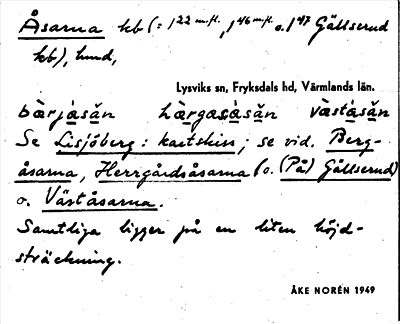 Åsarna kb (= 1²² m.fl., 1⁴⁶ m.fl. o. 1⁴⁷ Gällserud
kb), hmd,
Lysviks sn, Fryksdals hd, Värmlands län.
bàrjåsăn hàrgaṣåsăn vàståsăn
Se Lisjöberg: kartskiss; se vid. Berg-
åsarna, Herrgårdsåsarna (o. (På) Gällserud)
o. Väståsarna.
Samtliga ligger på en liten höjd-
sträckning.
ÅKE NORÉN 1949